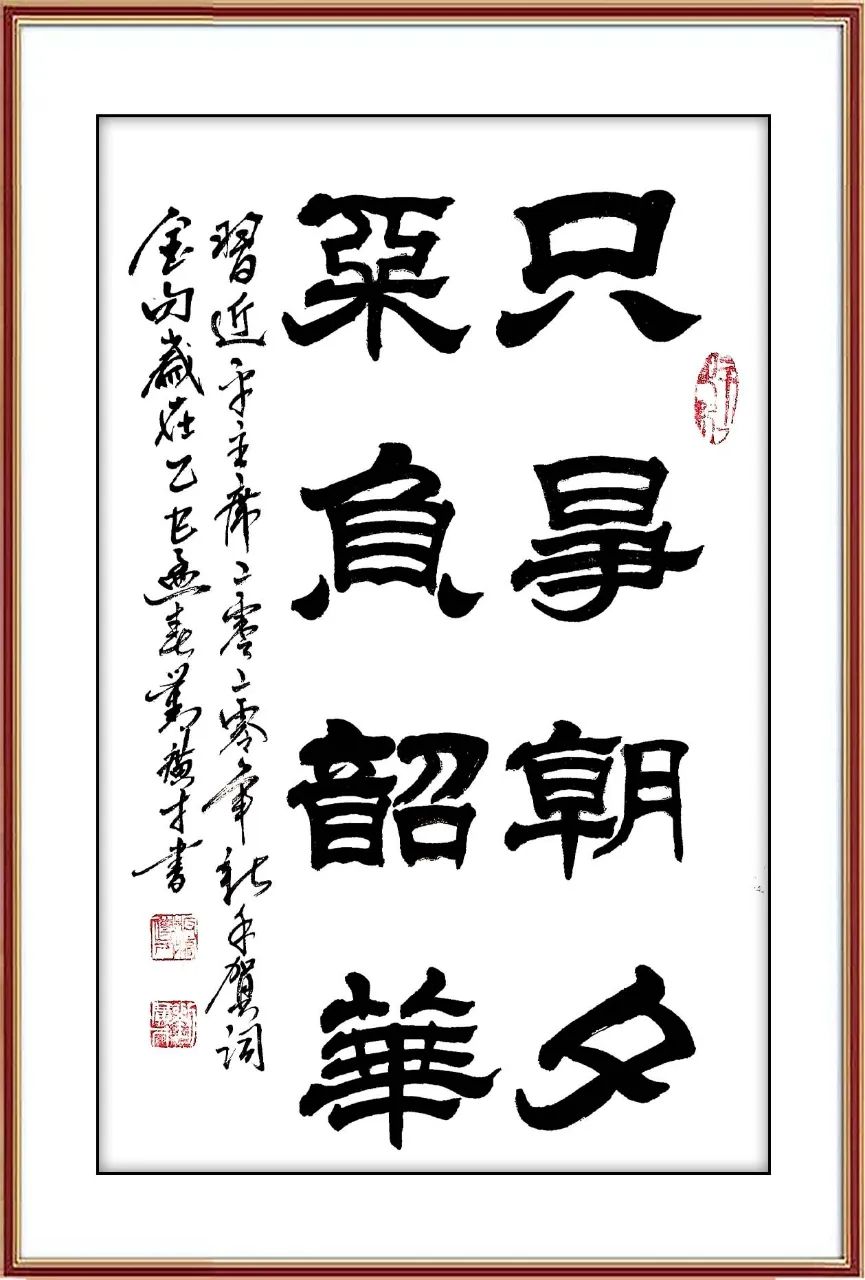 只爭朝夕
不負韶華
習近平主席二零二零年新年賀詞
金句歲在乙巳孟春劉才書